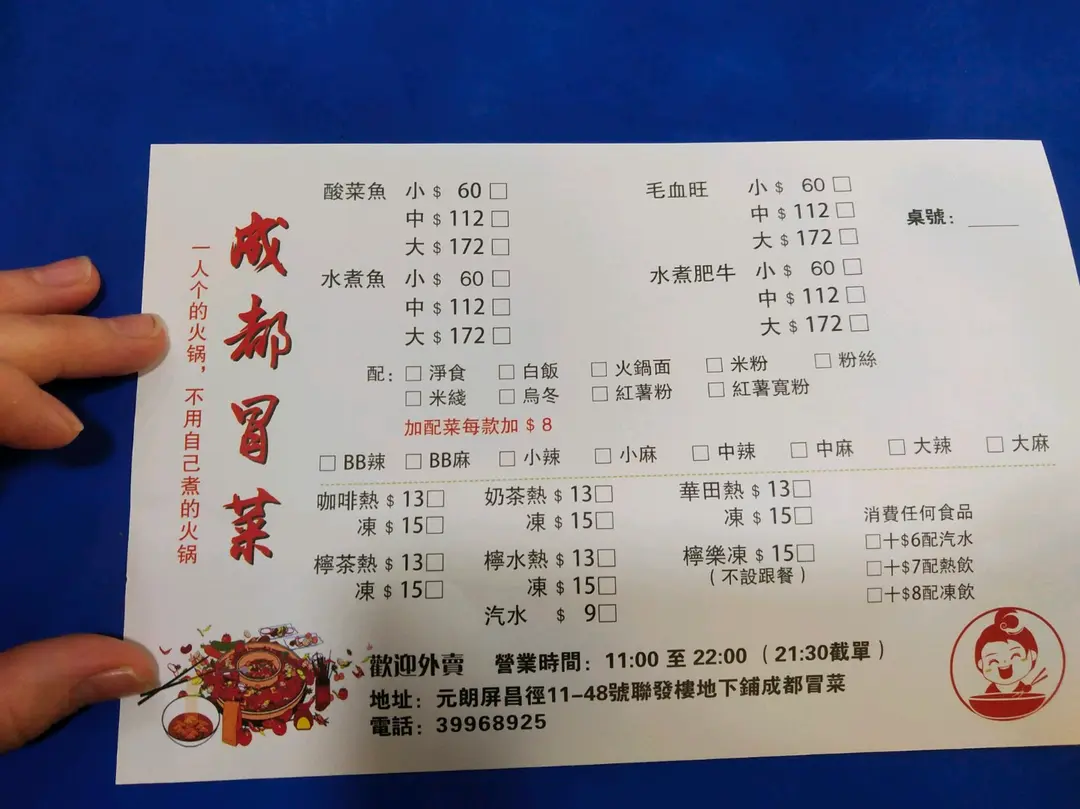 成都冒菜
一人个的火锅，不用自己煮的火锅
酸菜魚 小 $ 60 □
中 $ 112 □
大 $ 172 □
水煮魚 小 $ 60 □
中 $ 112 □
大 $ 172 □
毛血旺 小 $ 60 □
中 $ 112 □
大 $ 172 □
水煮肥牛 小 $ 60 □
中 $ 112 □
大 $ 172 □
桌號：
配：□ 淨食 □ 白飯 □ 火鍋面 □ 米粉 □ 粉絲
□ 米綫 □ 烏冬 □ 紅薯粉 □ 紅薯寬粉
加配菜每款加 $ 8
□ BB辣 □ BB麻 □ 小辣 □ 小麻 □ 中辣 □ 中麻 □ 大辣 □ 大麻
咖啡熱 $ 13□
凍 $ 15□
奶茶熱 $ 13□
凍 $ 15□
華田熱 $ 13□
凍 $ 15□
檸茶熱 $ 13□
凍 $ 15□
檸水熱 $ 13□
凍 $ 15□
檸樂凍 $ 15□
（不設跟餐）
汽水 $ 9□
消費任何食品
□十$6配汽水
□十$7配熱飲
□十$8配凍飲
歡迎外賣 營業時間：11:00 至 22:00（21:30截單）
地址：元朗屏昌徑11-48號聯發樓地下鋪成都冒菜
電話：39968925